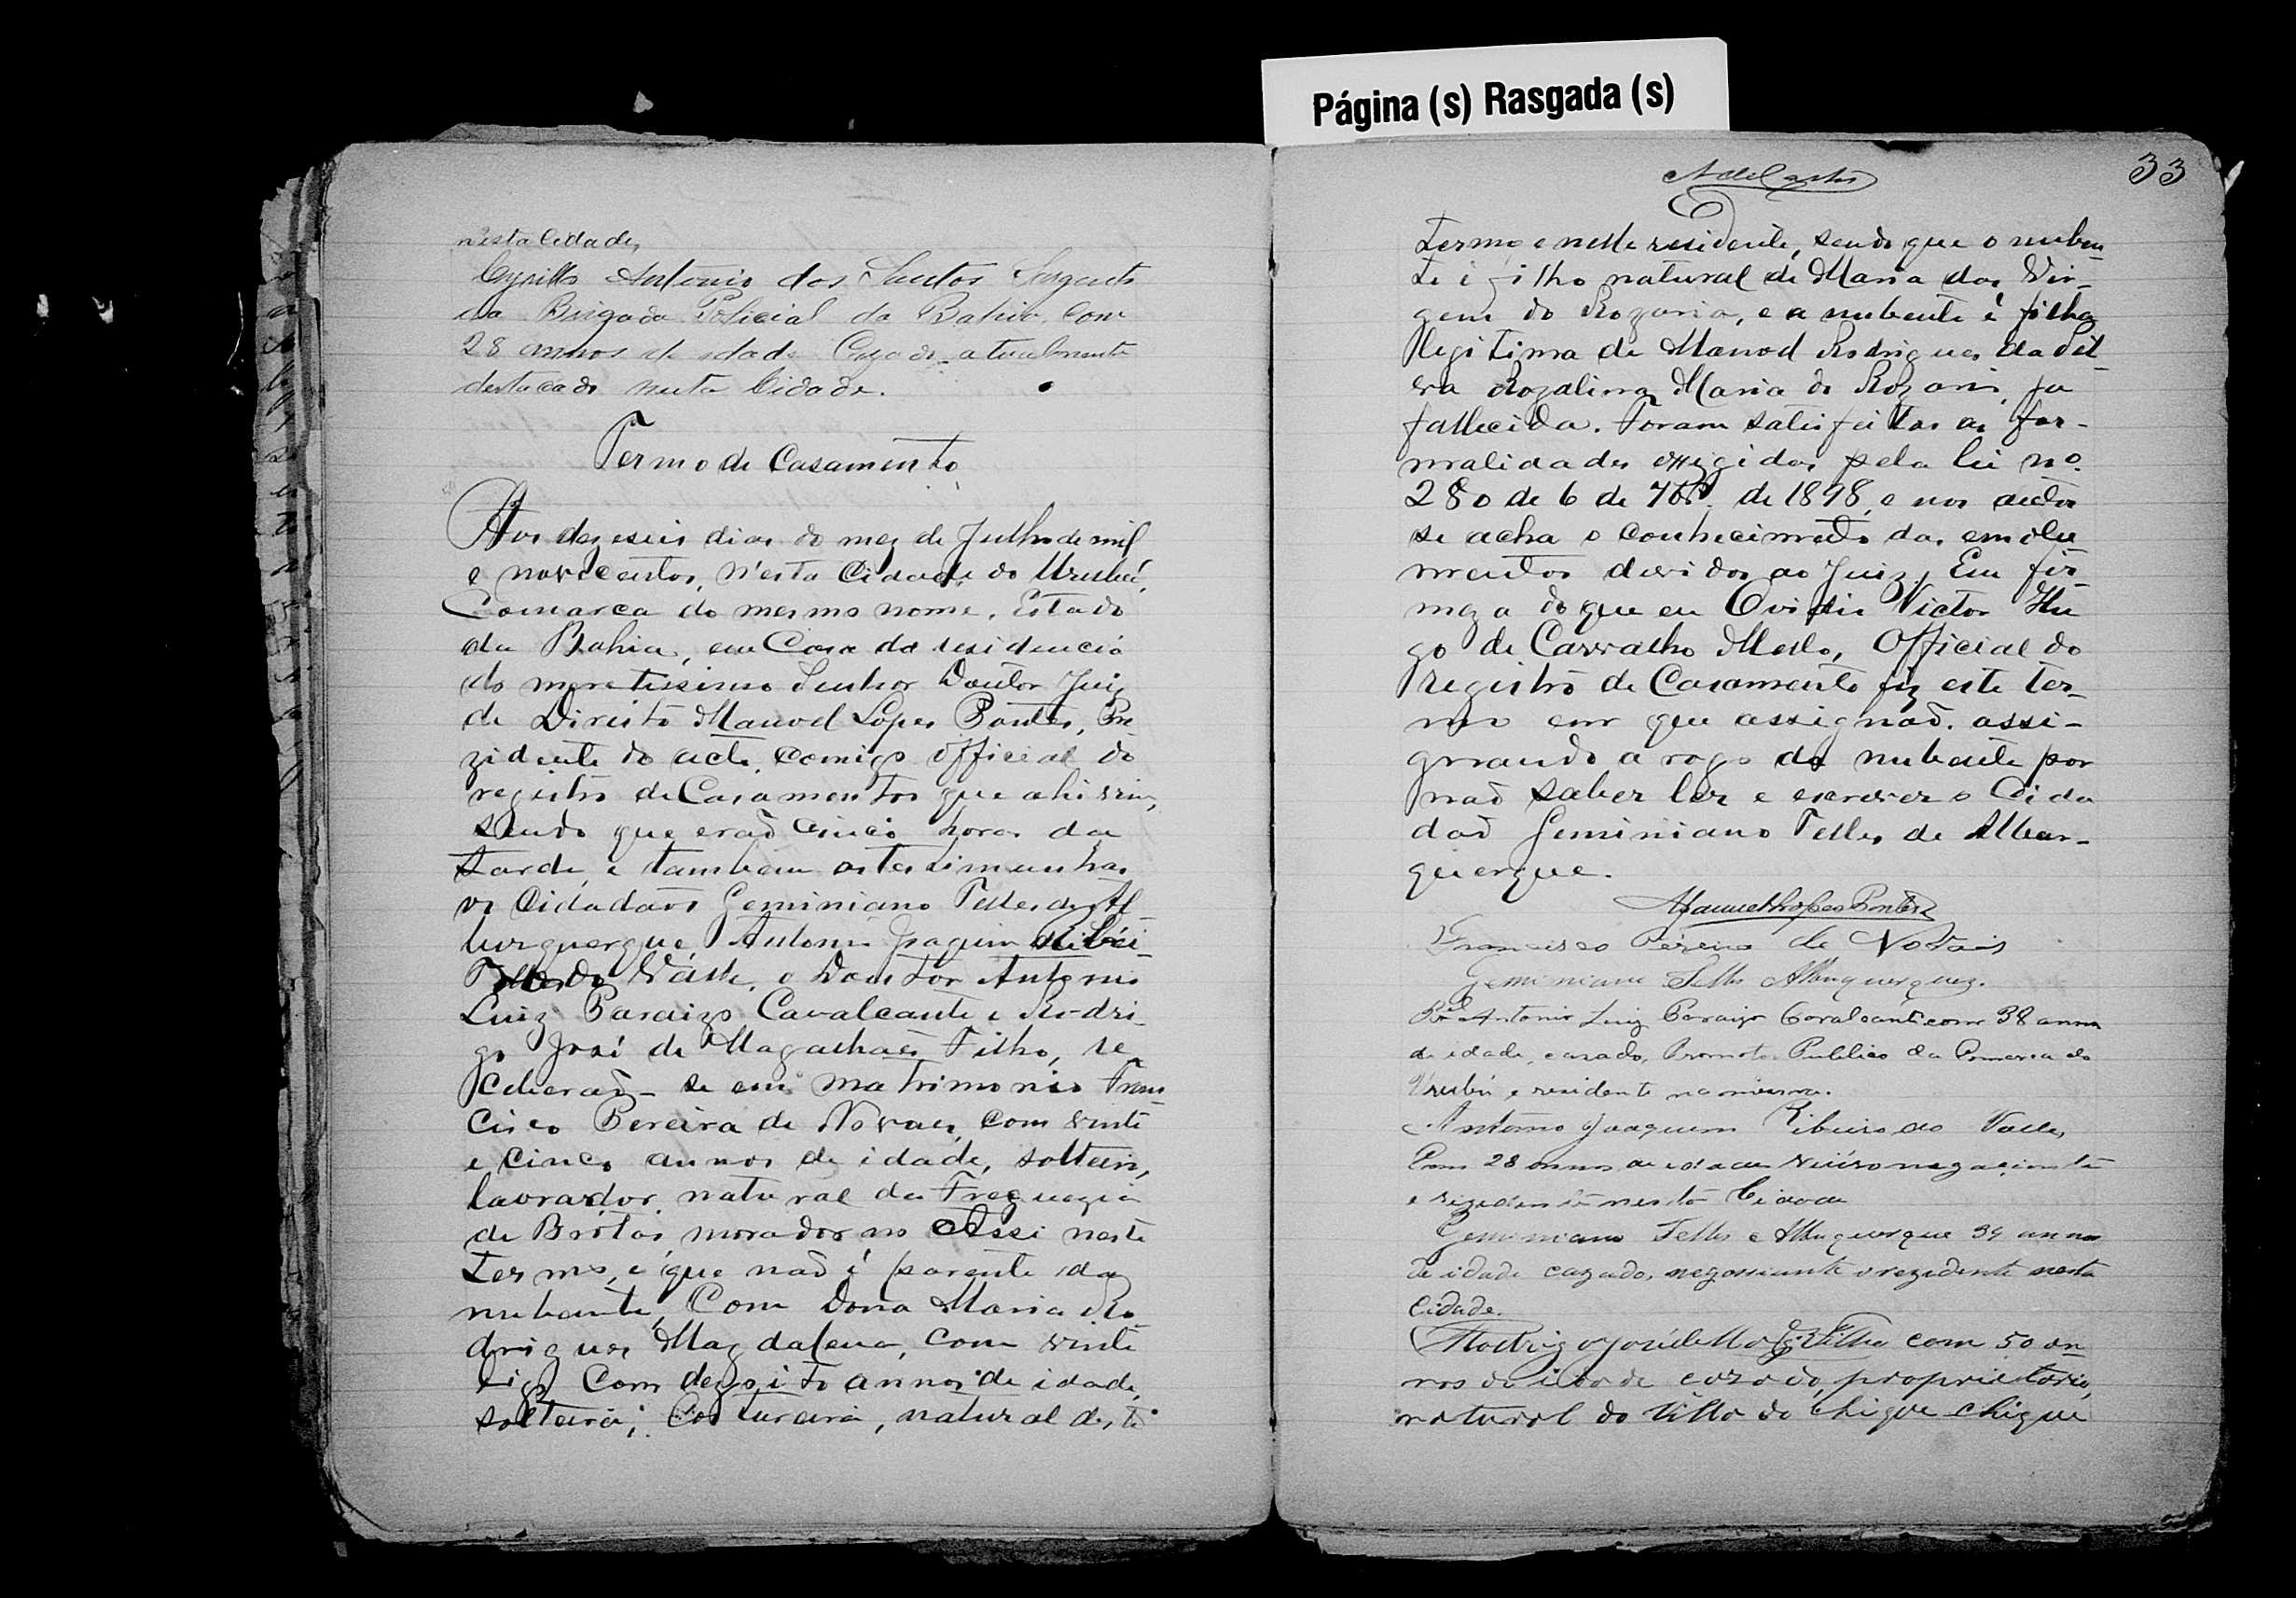 Página (s) Rasgada (s)
n'esta Cidade,
Cyrillo Antonio dos Santos Sargento
da Brigada Policial da Bahia com
28 annos de idade Cazado atualmente
destacado nesta Cidade.
Termo de Casamento
Aos dezeseis dias do mez de Julho de mil
e novecentos, n'esta Cidade do Urubú,
Comarca do mesmo nome, Estado
da Bahia, em Casa da residencia
do meretissimo Senhor Doutor Juiz
de Direito Manoel Lopes Pontes, Pre
zidente do acto, comigo official do
registro de Casamentos que ahi vim,
sendo que eraõ cinco horas da
tarde, e tambem as testimunhas
os Cidadaõs Geminiano Telles de Al
burquerque, Antonio Joaquim Ribei-
do Valle, o Doutor Antonio
Luiz Paraizo Cavalcante e Rodri-
go José de Magalhaẽs Filho, re
ceberaõ-se em matrimonio Fran
cisco Pereira de Novaes, com vinte
e cinco annos de idade, solteiro,
lavrador, natural da Freguezia
de Brotas, morador no Assi neste
Termo, e que naõ é parente da
nubente, Com Dona Maria Ro
drigues Magdalena, com vinte
digo Com dezoito annos de idade,
solteira, Costureira, natural deste
33
Termo e nelle residente, sendo que o nuben
te é filho natural de Maria das Vir-
gem do Rozario, e a nubente é filha
legitima de Manoel Rodrigues da Sil
va Rozalina Maria do Rozario, ja
fallecida. Foram satisfeitas as for-
malidades exigidas pela lei nº.
280 de 6 de 7brº. de 1898, e nos autos
se acha o conhecimento dos emolu
mentos devidos ao Juiz. Em fir
meza do que eu Ovidio Victor Hu
go de Carvalho Mello, Official do
registro de Casamento fiz este ter-
mo em que assignaõ, assi-
gnando a rogo da nubente por
naõ saber ler e escrever o Cida
daõ Geminiano Telles de Albur-
querque.
Manuel Lopes Pontes
Francisco Pereira de Novais
Geminiano Telles Albuquerque.
Bel Antonio Luiz Paraizo Cavalcanti com 38 annos
de idade, casado, Promotor Publico da Comarca do
Urubú e residente na mesma.
Antonio Joaquim Ribeiro do Valle,
Com 28 annos de idade Viúvo negociante
e rezidente nesta Cidade
Geminiano Telles e Albuquerque 34 annos
de idade cazado, negossiante e rezidente nesta
Cidade.
Rodrigo José de Filho com 50 an
nos de idade cazado, proprietario,
natural da Villa do Chique Chique